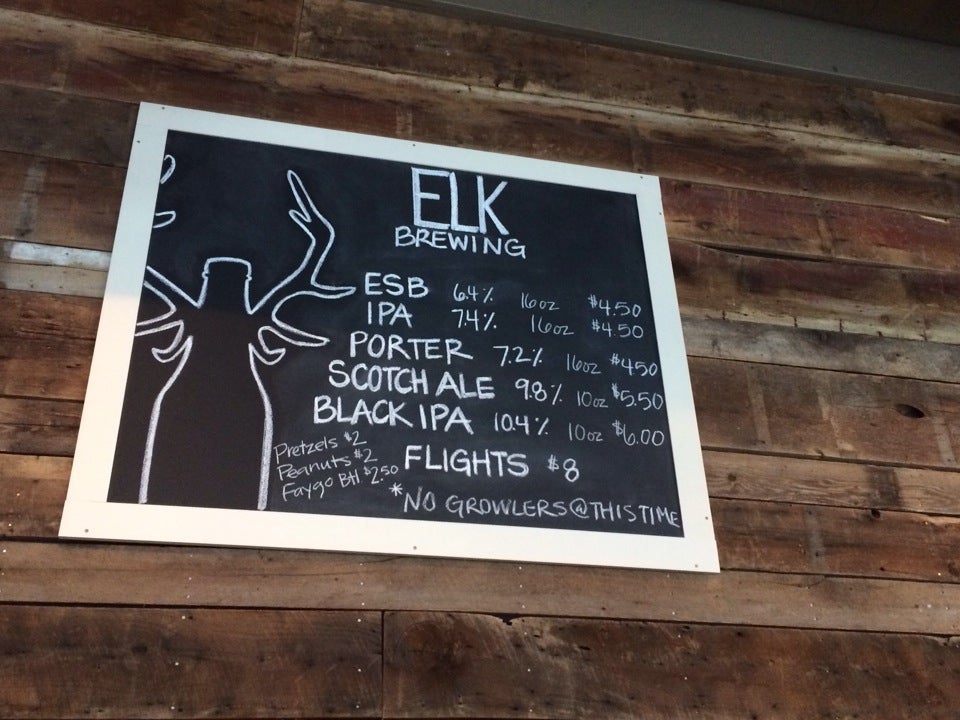 ELK
BREWING
ESB 6.4% 16oz $4.50
IPA 7.4% 16oz $4.50
PORTER 7.2% 16oz $4.50
SCOTCH ALE 9.8% 10oz $5.50
BLACK IPA 10.4% 10oz $6.00
FLIGHTS $8
Pretzels $2
Peanuts $2
Faygo Btl $2.50
*NO GROWLERS@THIS TIME